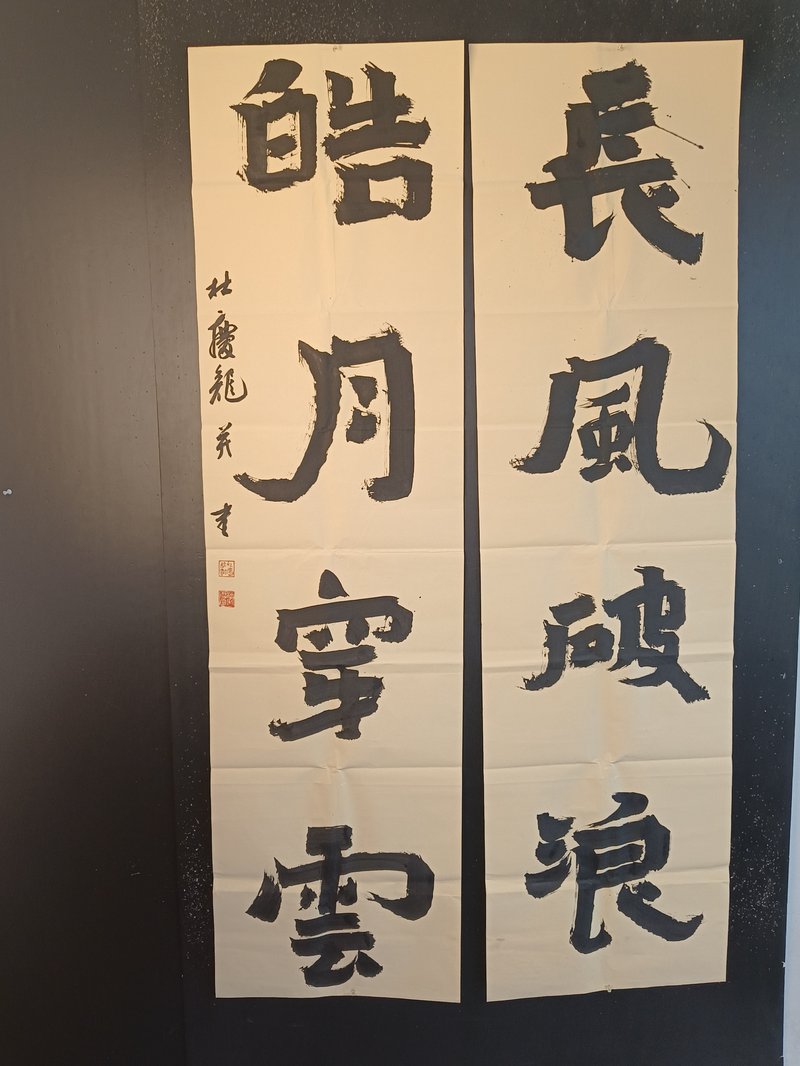 長風破浪
皓月穿雲
杜慶龍并書